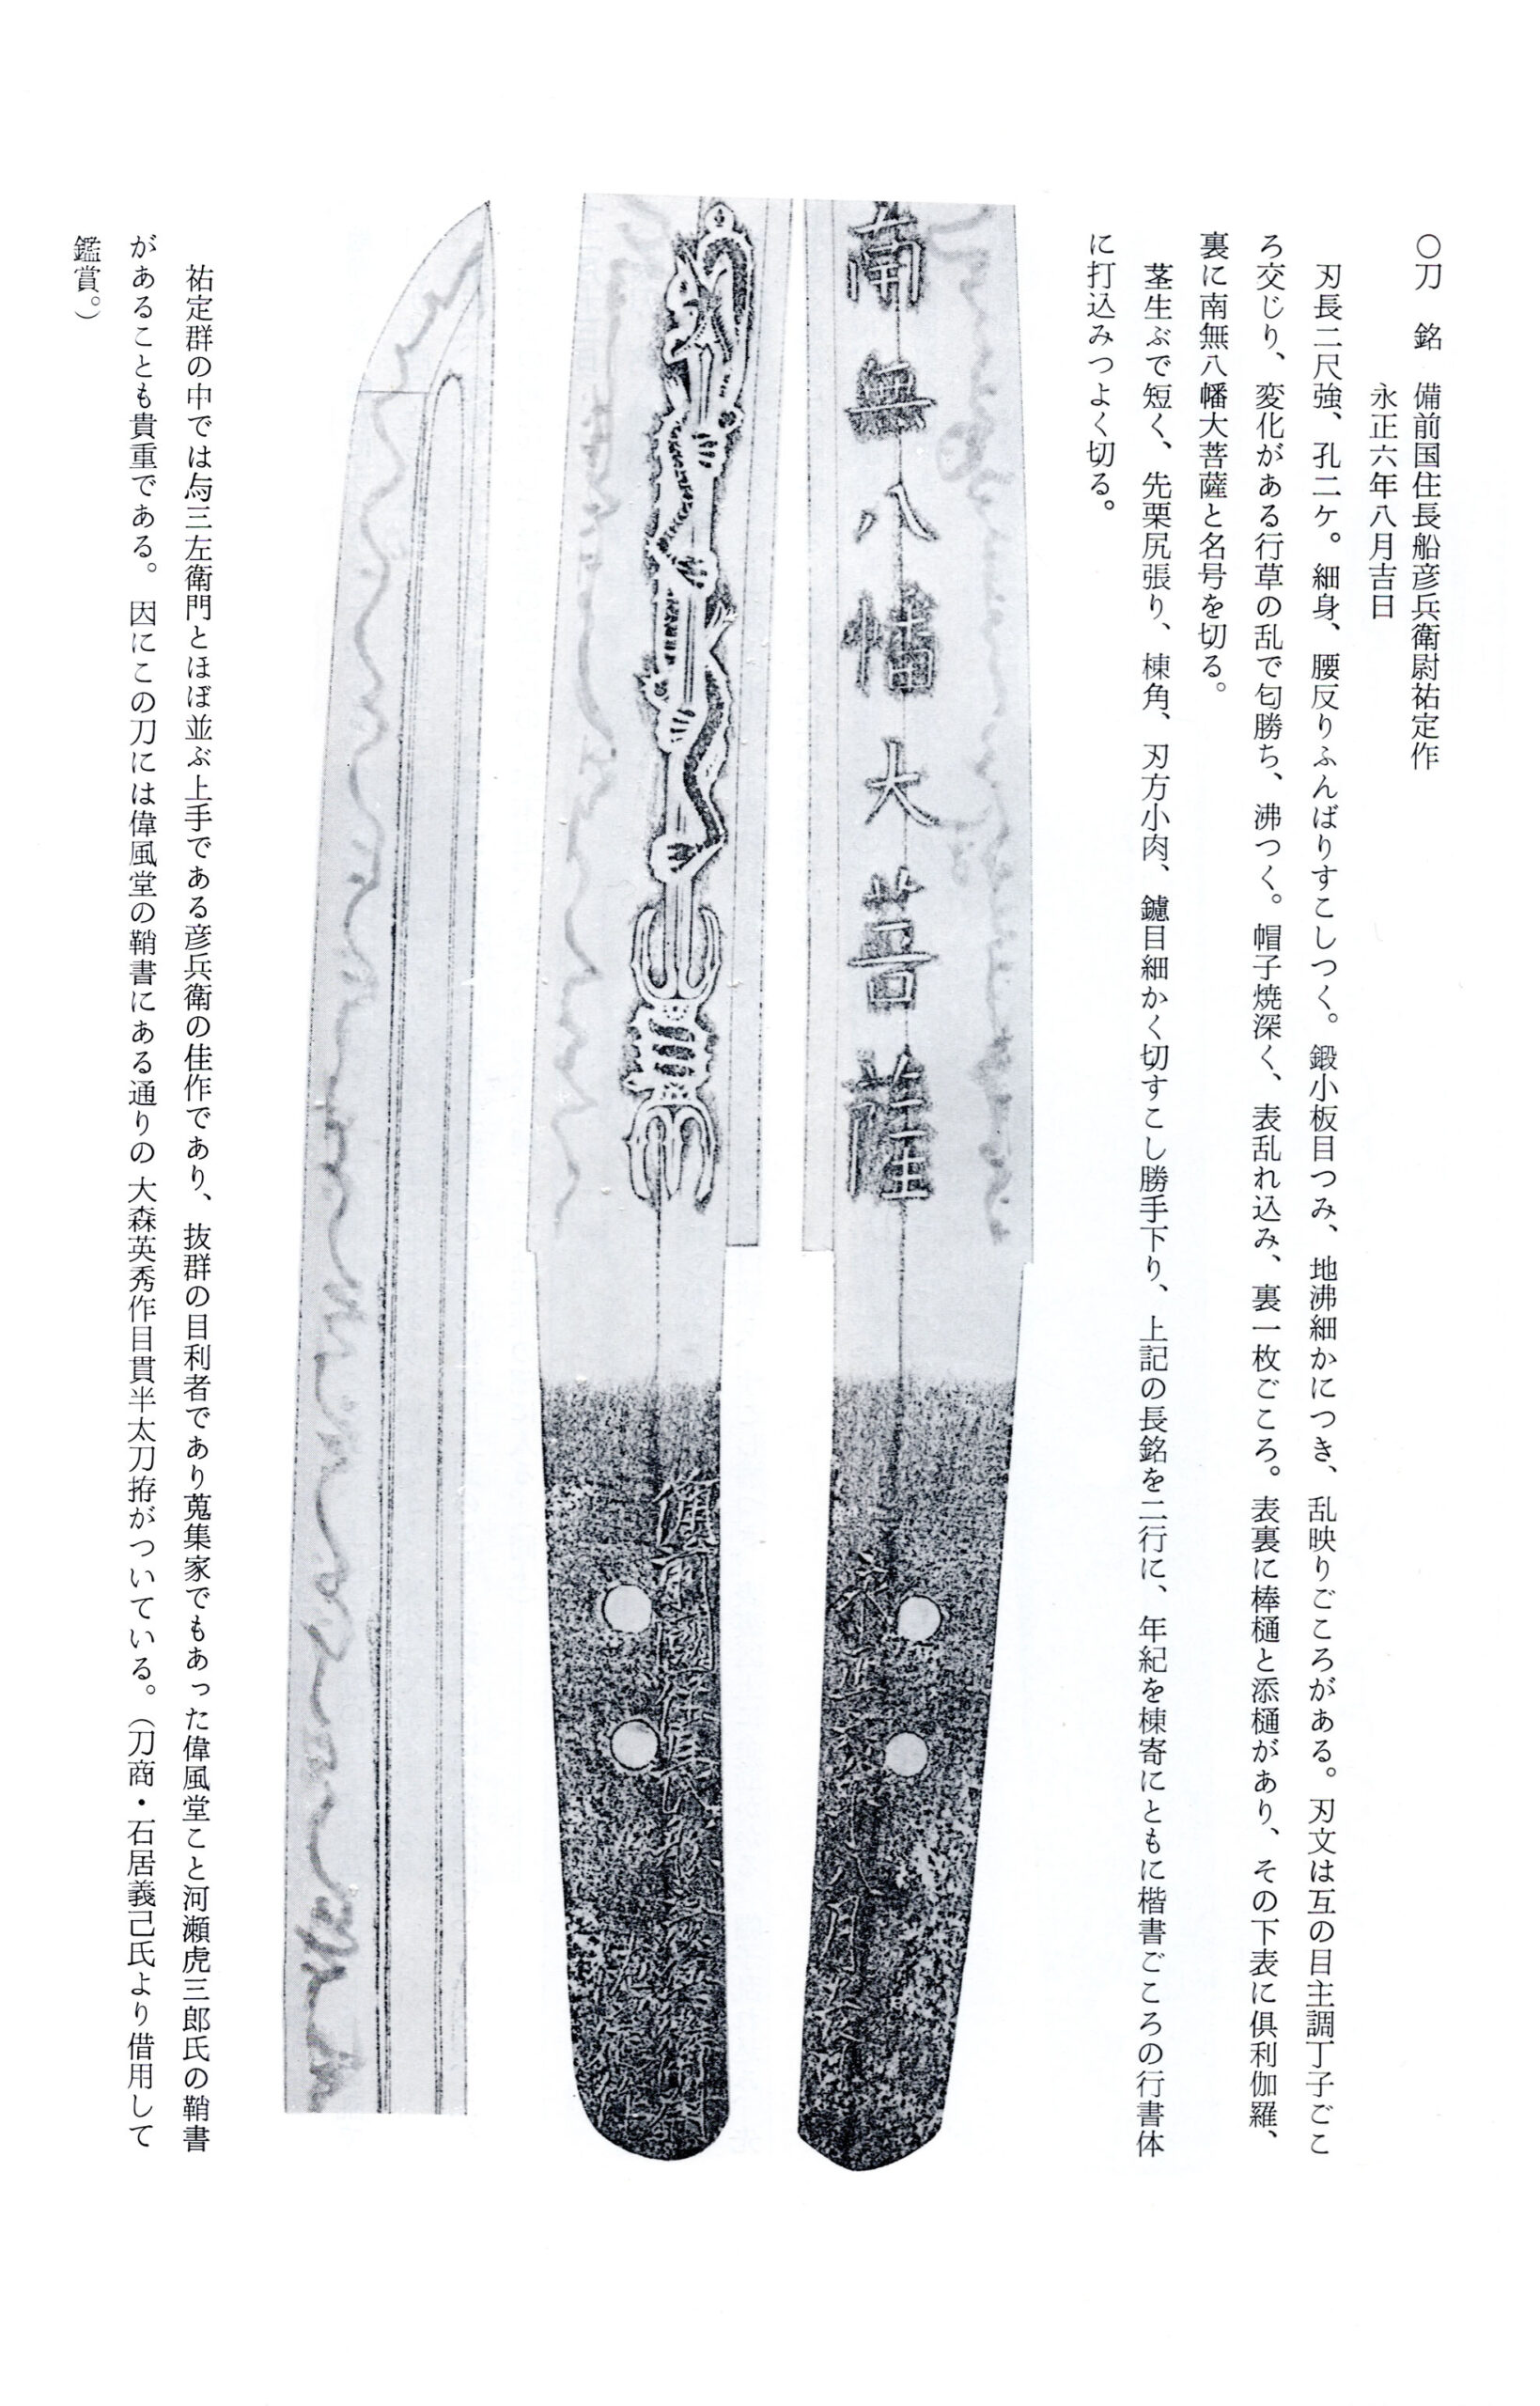 ○刀　銘　備前国住長船彦兵衛尉祐定作
永正六年八月吉日
刃長二尺強、孔二ケ。細身、腰反りふんばりすこしつく。鍛小板目つみ、地沸細かにつき、乱映りごころがある。刃文は互の目主調丁子ごこ
ろ交じり、変化がある行草の乱で匂勝ち、沸つく。帽子焼深く、表乱れ込み、裏一枚ごころ。表裏に棒樋と添樋があり、その下表に倶利伽羅、
裏に南無八幡大菩薩と名号を切る。
茎生ぶで短く、先栗尻張り、棟角、刃方小肉、鑢目細かく切すこし勝手下り、上記の長銘を二行に、年紀を棟寄にともに楷書ごころの行書体
に打込みつよく切る。
南無八幡大菩薩
永正六年八月吉
備前國住長
祐定群の中では与三左衛門とほぼ並ぶ上手である彦兵衛の佳作であり、抜群の目利者であり蒐集家でもあった偉風堂こと河瀬虎三郎氏の鞘書
があることも貴重である。因にこの刀には偉風堂の鞘書にある通りの大森英秀作目貫半太刀拵がついている。（刀商・石居義己氏より借用して
鑑賞。）